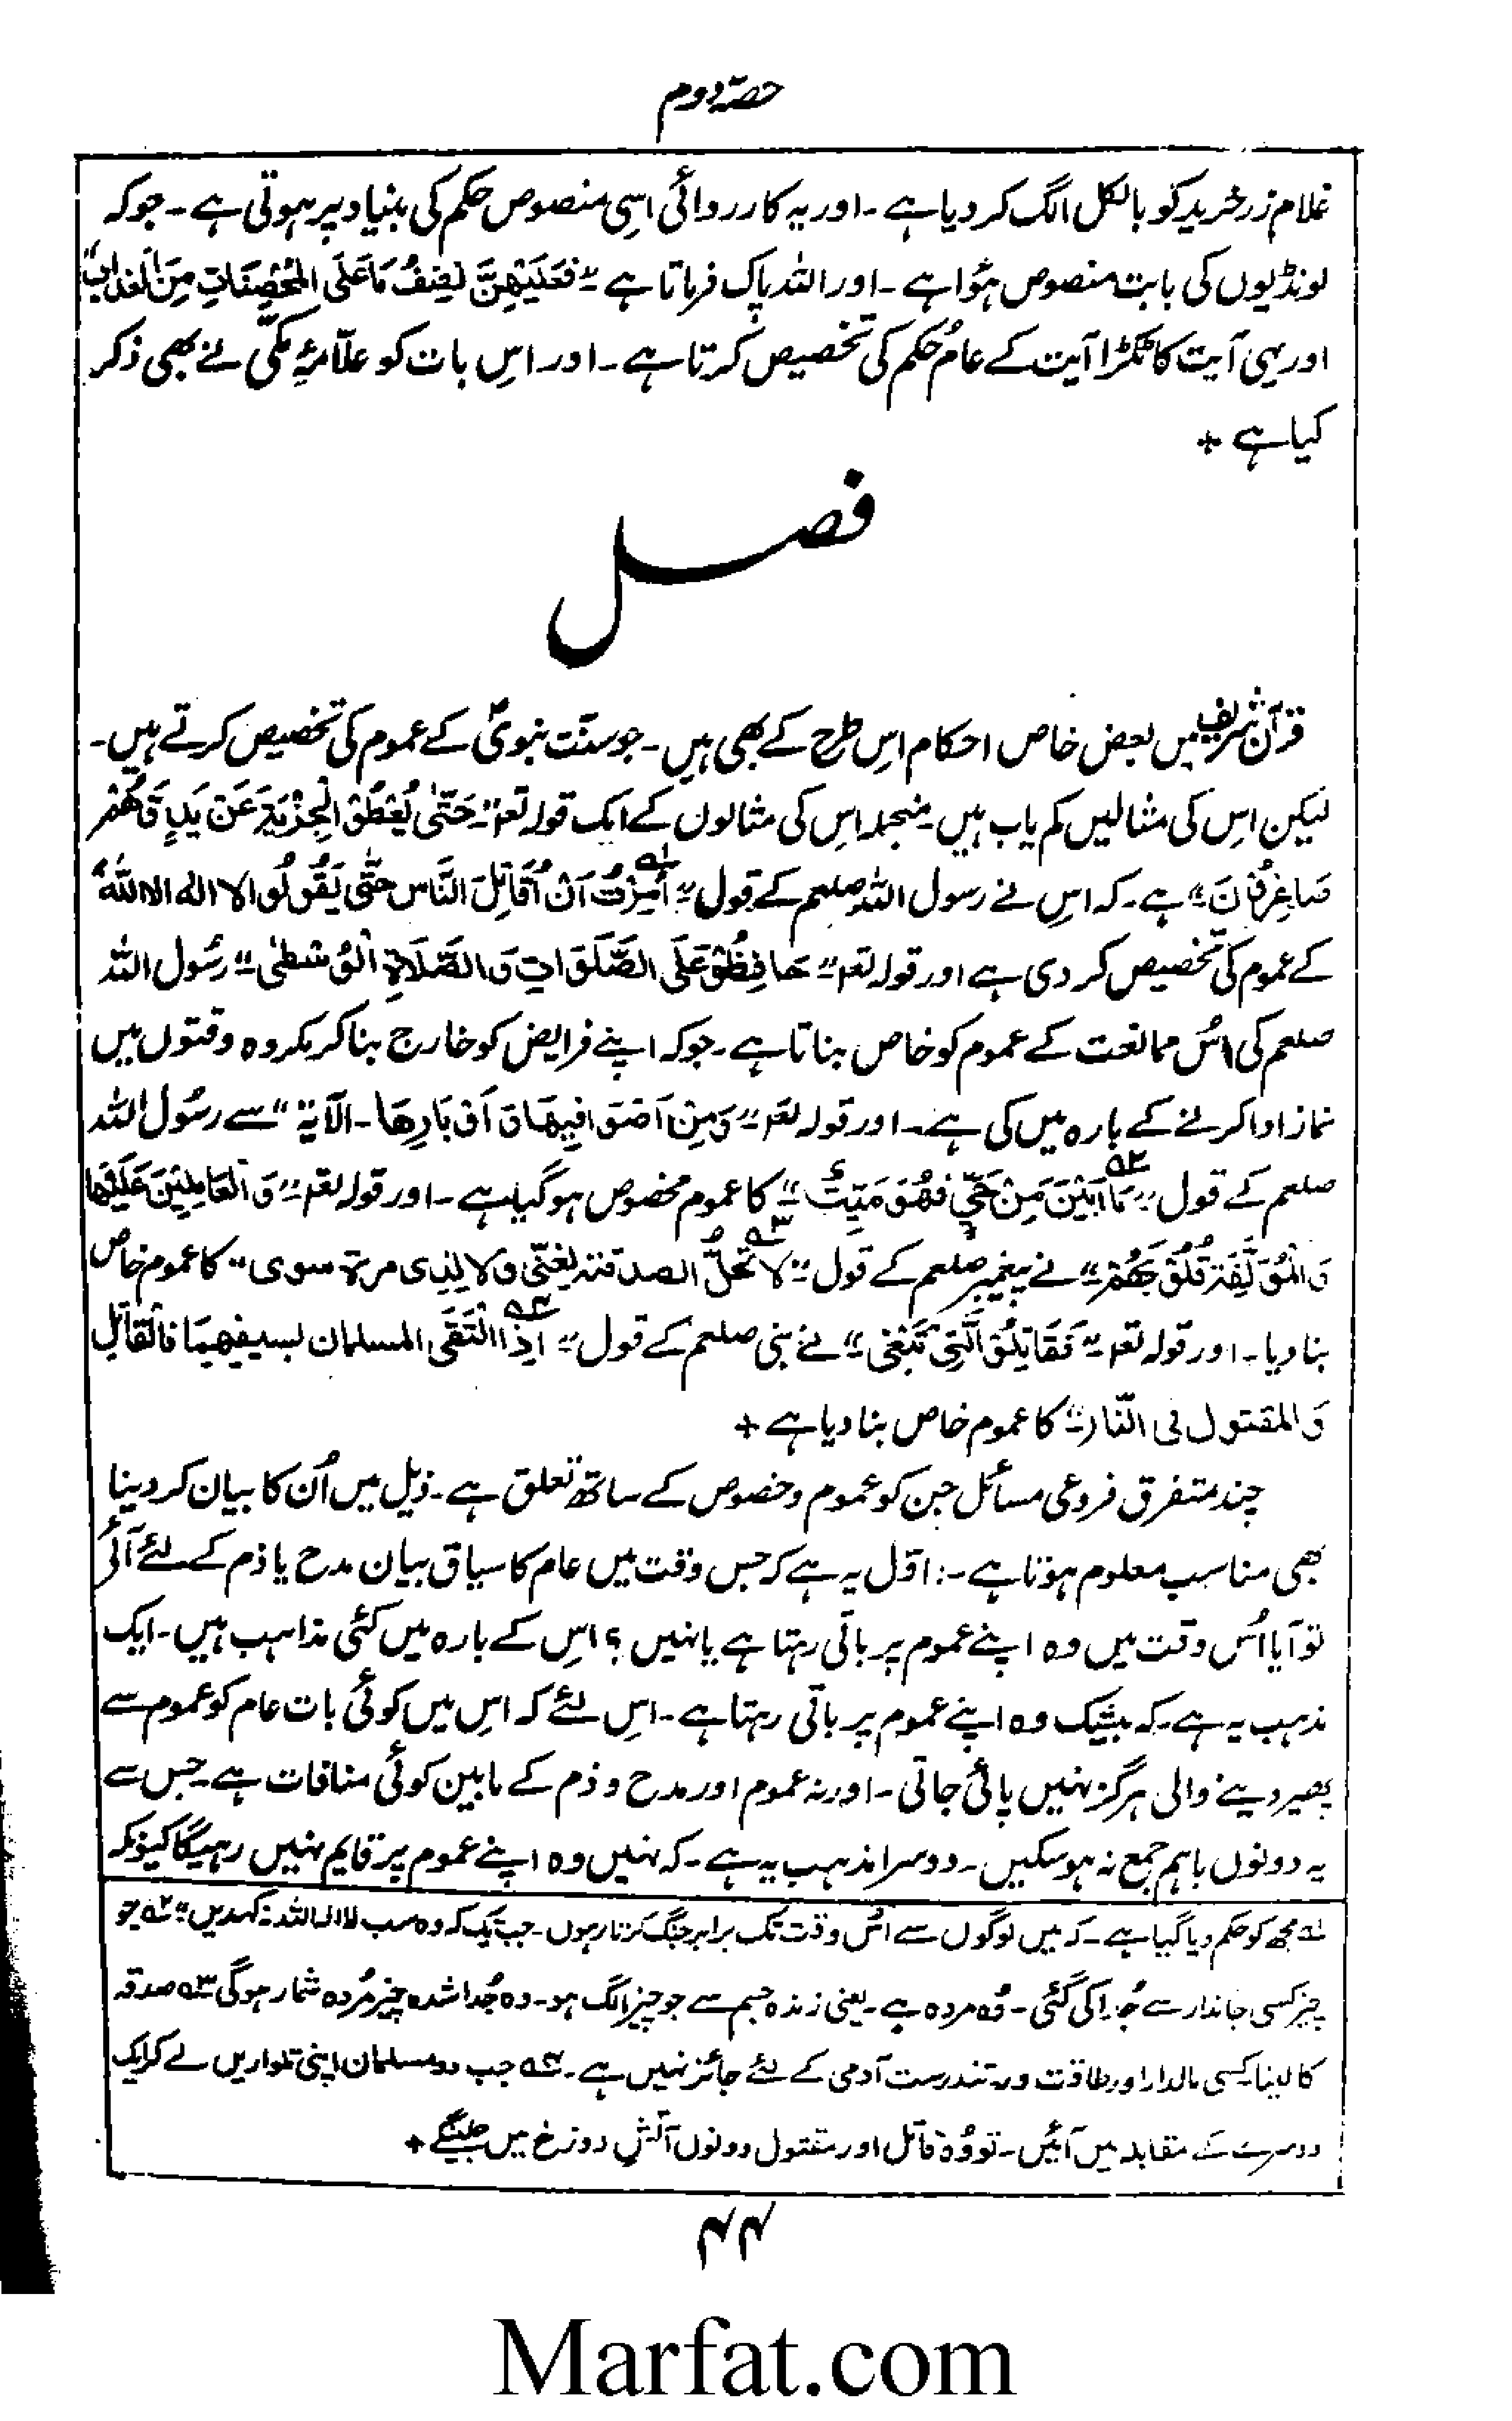 حصہ دوم
غلام زرخرید کو بالکل الگ کر دیا ہے ۔ اور یہ کارروائی اسی منصوص حکم کی بنیاد پر ہوتی ہے ۔ جو کہ
لونڈیوں کی بابت منصوص ہؤا ہے ۔ اور اللہ پاک فرماتا ہے ” فَعَلَیْهِنَّ نِصْفُ مَا عَلَی الْمُحْصَنَاتِ مِنَ الْعَذَابِ“
اور یہی آیت کا ٹکڑا آیت کے عام حکم کی تخصیص کرتا ہے ۔ اور اس بات کو علّامۂ مکّی نے بھی ذکر
کیا ہے +
فصل
قرآن شریف میں بعض خاص احکام اِس طرح کے بھی ہیں ۔ جو سنّت نبویؐ کے عموم کی تخصیص کرتے ہیں ۔
لیکن اِس کی مثالیں کم یاب ہیں ۔ منجملہ اِس کی مثالوں کے ایک قولہ تعہ ” حَتّٰی یُعْطُوا الْجِزْیَةَ عَنْ یَدٍ وَّهُمْ
صَاغِرُوْنَ “ ہے ۔ کہ اس نے رسول اللہ صلعم کے قول ” اُمِرْتُ اَنْ اُقَاتِلَ النَّاس حَتّٰی یَقُوْلُوا لا اله الا اللّٰه“ ۱ه
کے عموم کی تخصیص کر دی ہے اور قولہ تعہ ” حَافِظُوْا عَلَی الصَّلَوَاتِ وَالصَّلَاةِ الْوُسْطٰی “ رسُول اللہ
صلعم کی اُس ممانعت کے عموم کو خاص بناتا ہے ۔ جو کہ اپنے فرایض کو خارج بنا کر مکروہ وقتوں میں
نماز ادا کرنے کے بارہ میں کی ہے ۔ اور قولہ تعہ ” وَمِنْ اَصْوَافِهَا وَ اَوْبَارِهَا ۔ الآیة “ سے رسُول اللہ
صلعم کے قول ” مَا اُبِیْنَ مِنْ حَیٍّ فَهُوَ مَیِّتٌ “ ۲ه کا عموم مخصوص ہو گیا ہے ۔ اور قولہ تعہ ” وَالْعَامِلِیْنَ عَلَیْهَا
وَالْمُؤَلَّفَةِ قُلُوْبُهُمْ “ نے پیغمبر صلعم کے قول ” لَا تَحِلُّ الصدقة لِغَنِیٍّ ولا لِذِی مرة سوی “ ۳ه کا عموم خاص
بنا دیا ۔ اور قولہ تعہ ” فَقَاتِلُوا الَّتِیْ تَبْغِیْ “ نے نبی صلعم کے قول ” اِذَا الْتَقَی المسلمان بسیفهیمَا فَالْقَاتِل ۴ه
وَالمقتول فی النّار “ کا عموم خاص بنا دیا ہے +
چند متفرق فروعی مسائل جن کو عموم و خصوص کے ساتھ تعلق ہے ۔ ذیل میں اُن کا بیان کر دینا
بھی مناسب معلوم ہوتا ہے ۔: اوّل یہ ہے کہ جس وقت میں عام کا سیاق بیان مدح یا ذم کے لئے آئے
تو آیا اُس وقت میں وہ اپنے عموم پر باقی رہتا ہے یا نہیں ؟ اِس کے بارہ میں کئی مذاہب ہیں ۔ ایک
مذہب یہ ہے ۔ کہ بیشک وہ اپنے عموم پر باقی رہتا ہے ۔ اِس لئے کہ اِس میں کوئی بات عام کو عموم سے
پھیر دینے والی ہرگز نہیں پائی جاتی ۔ اور نہ عموم اور مدح و ذم کے مابین کوئی منافات ہے ۔ جس سے
یہ دونوں باہم جمع نہ ہو سکیں ۔ دوسرا مذہب یہ ہے ۔ کہ نہیں وہ اپنے عموم پر قایم نہیں رہیگا کیونکہ
۱ه مجھ کو حکم دیا گیا ہے ۔ کہ میں لوگوں سے اُس وقت تک برابر جنگ کرتا رہوں ۔ جب تک کہ وہ سب لا الہ الا اللہ : کہدیں “ ۲ه جو
چیز کسی جاندار سے جُدا کی گئی ۔ وُہ مردہ ہے ۔ یعنی زندہ جسم سے جو چیز الگ ہو ۔ وہ جُدا شدہ چیز مُردہ شمار ہو گی ۳ه صدقہ
کا لینا کسی مالدار اور طاقت ور تندرست آدمی کے لئے جائز نہیں ہے ۔ ۴ه جب دو مسلمان اپنی تلواریں لے کر ایک
دوسرے کے مقابلہ میں آئیں ۔ تو وُہ قاتل اور مقتول دونوں آتشِ دوزخ میں جلینگے +
۴۴
Marfat.com